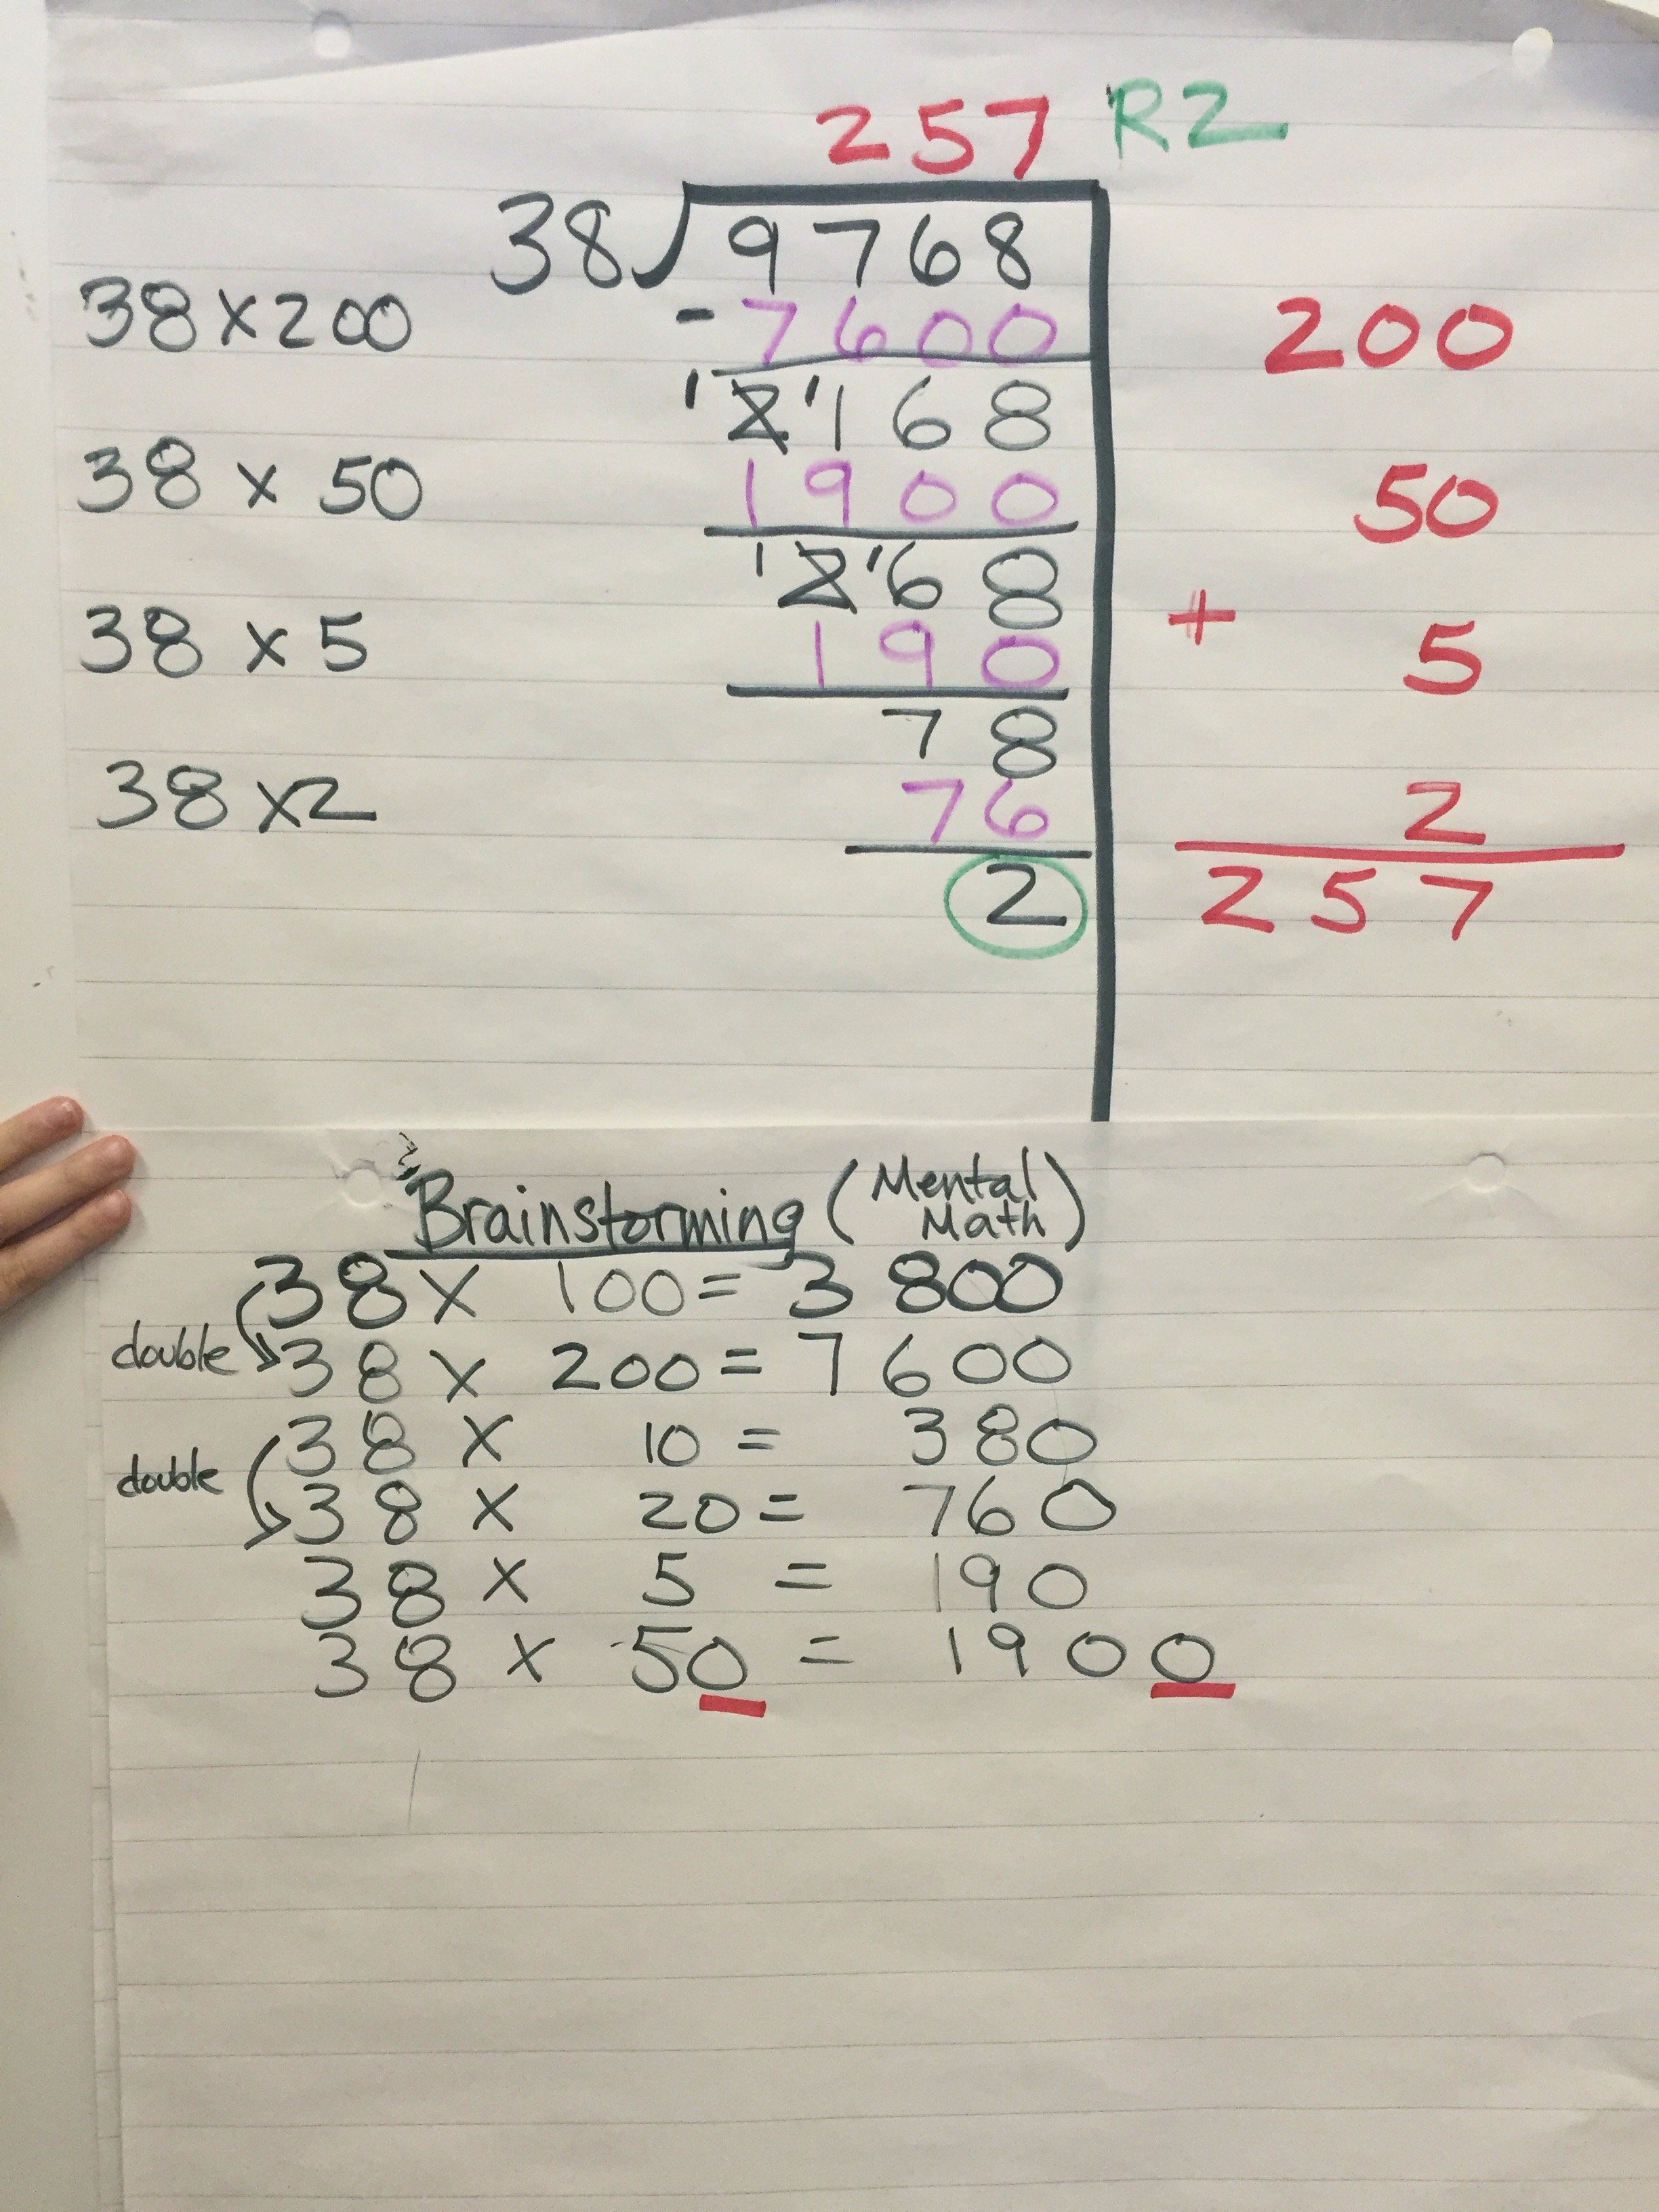 257 R2
38 9768
38 x 200 - 7600 200
1 2 1 1 6 8
38 x 50 1900 50
1 2 1 6 8
38 x 5 190 + 5
78
38 x 2 76 2
2 257
Brainstorming (Mental Math)
38 x 100 = 3800
double 38 x 200 = 7600
38 x 10 = 380
double 38 x 20 = 760
38 x 5 = 190
38 x 50 = 1900